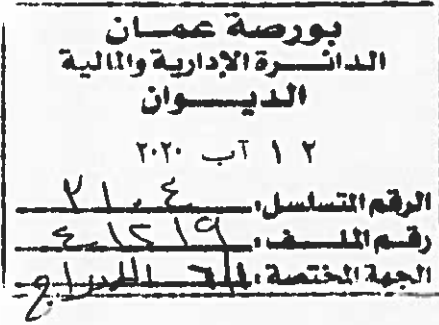 بورصة عمان
الدائرة الإدارية والمالية
الديوان
١٢ آب ٢٠٢٠
الرقم المتسلسل:
رقم الملف: ٤١٢١٩
الجهة المختصة: